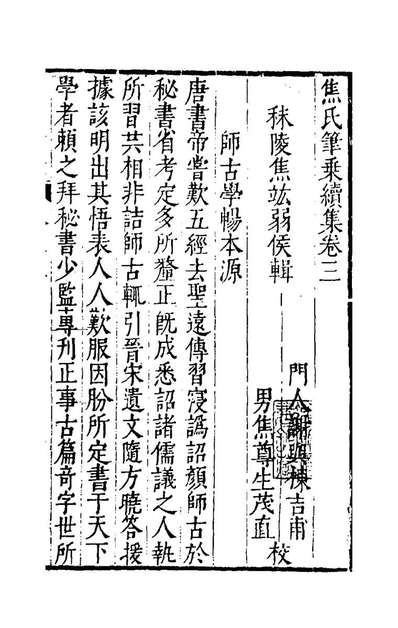 焦氏筆乗續集卷三
秣陵焦竑弱侯輯
門人謝與棟吉甫
男焦尊生茂直 校
師古學暢本源
唐書帝嘗歎五經去聖遠傳習寖譌詔顔師古於
秘書省考定多所釐正既成悉詔諸儒議之人執
所習共相非詰師古輒引晉宋遺文隨方曉答援
據該明出其悟表人人歎服因肦所定書于天下
學者賴之拜秘書少監專刋正事古篇奇字世所